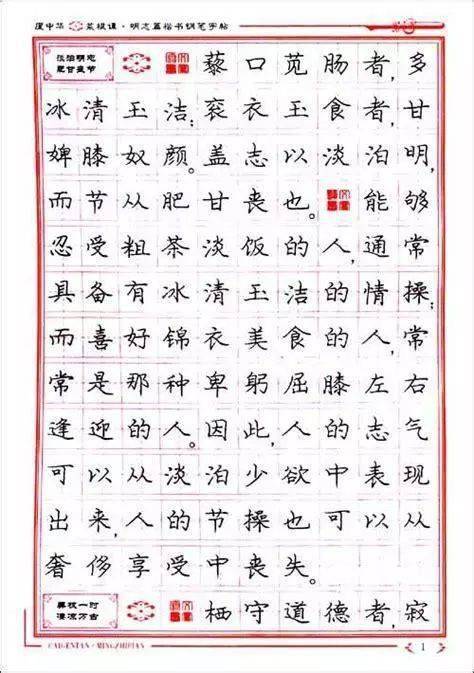 庞中华 菜根谭·明志篇楷书钢笔字帖
淡泊明志
肥甘丧节
藜口苋肠者,多
冰清玉洁;衮衣玉食者,甘
婢膝奴颜。盖志以淡泊明,
而节从肥甘丧也。能够
忍受粗茶淡饭的人,通常
具备有冰清玉洁的情操;
而喜好锦衣美食的人,常
常是那种卑躬屈膝左右
逢迎的人。因此,人的志气
可以从淡泊少欲中表现
出来,人的节操也可以从
奢侈享受中丧失。
弄权一时
凄凉万古
栖守道德者,寂
CAIGENTAN·MINGZHIPIAN
1